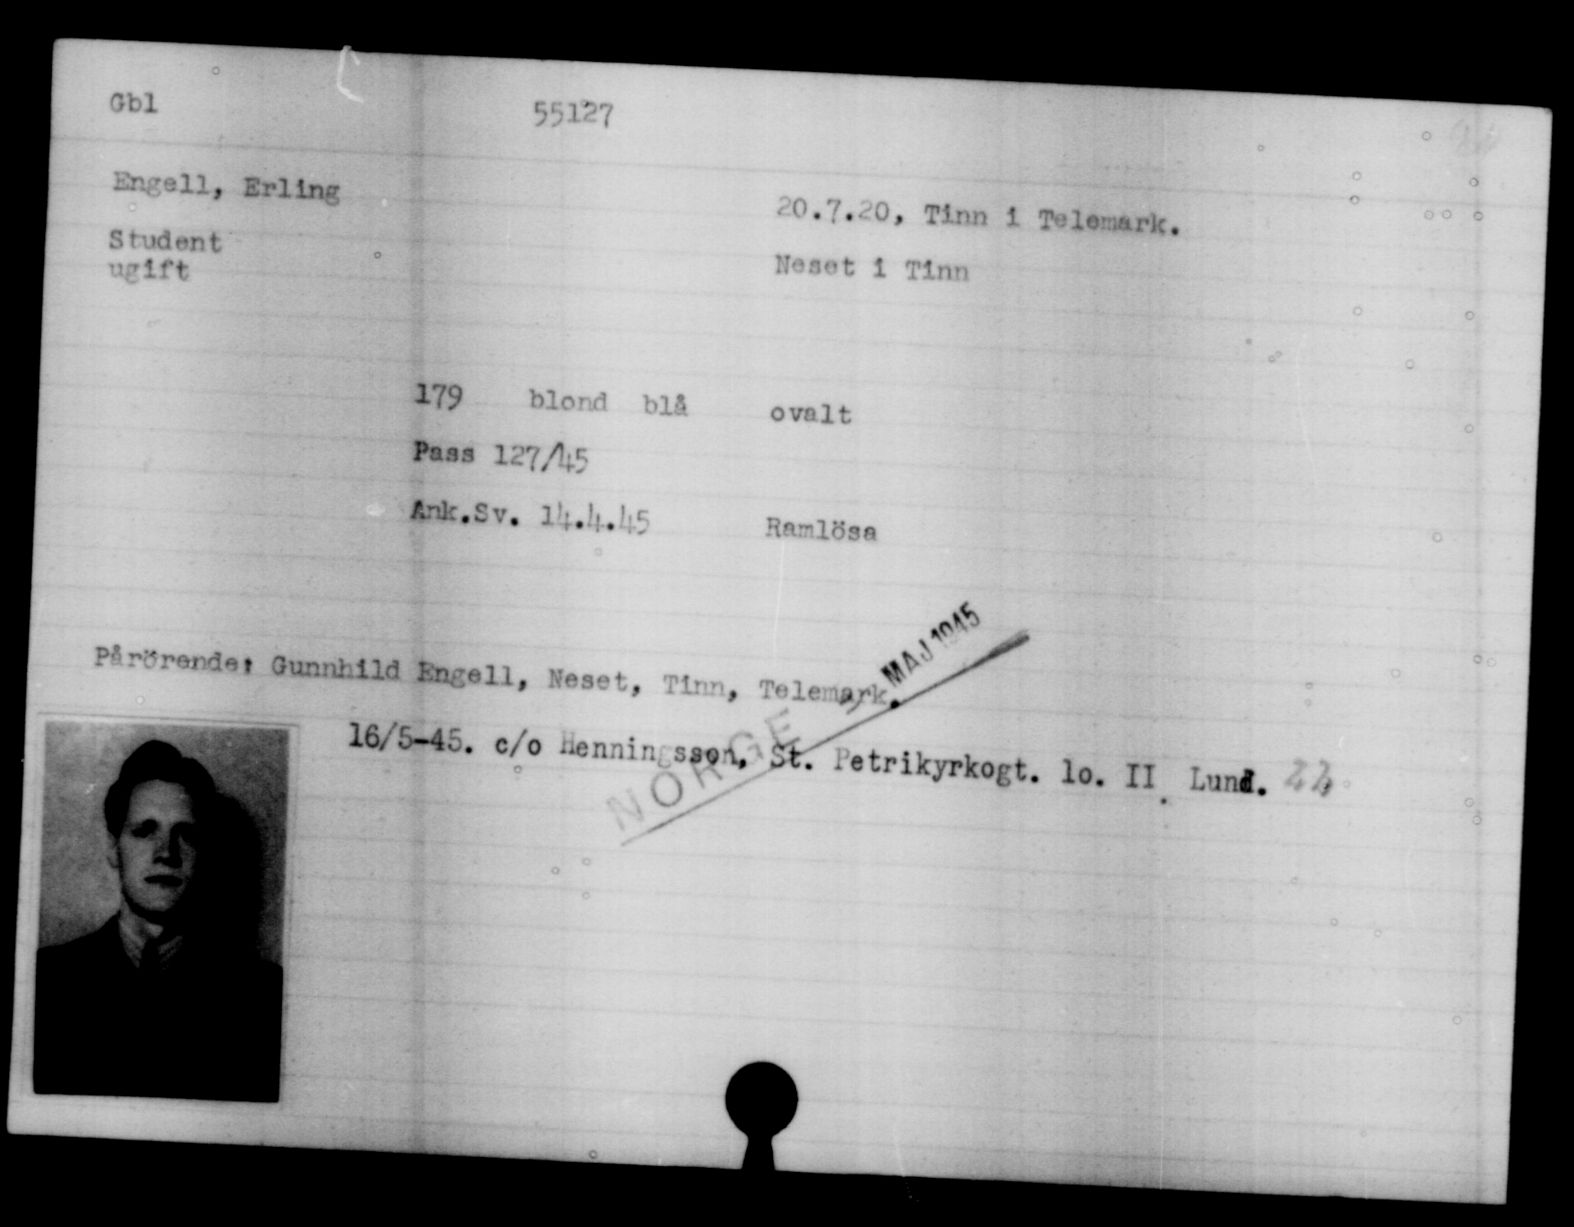 Gbl 55127
Engell, Erling 20.7.20, Tinn i Telemark.
Student Neset i Tinn
ugift
179 blond blå ovalt
Pass 127/45
Ank.Sv. 14.4.45 Ramlösa
Pårörende: Gunnhild Engell, Neset, Tinn, Telemark.
NORGE MAJ 1945
16/5-45. c/o Henningsson, St. Petrikyrkogt. lo. II Lund.